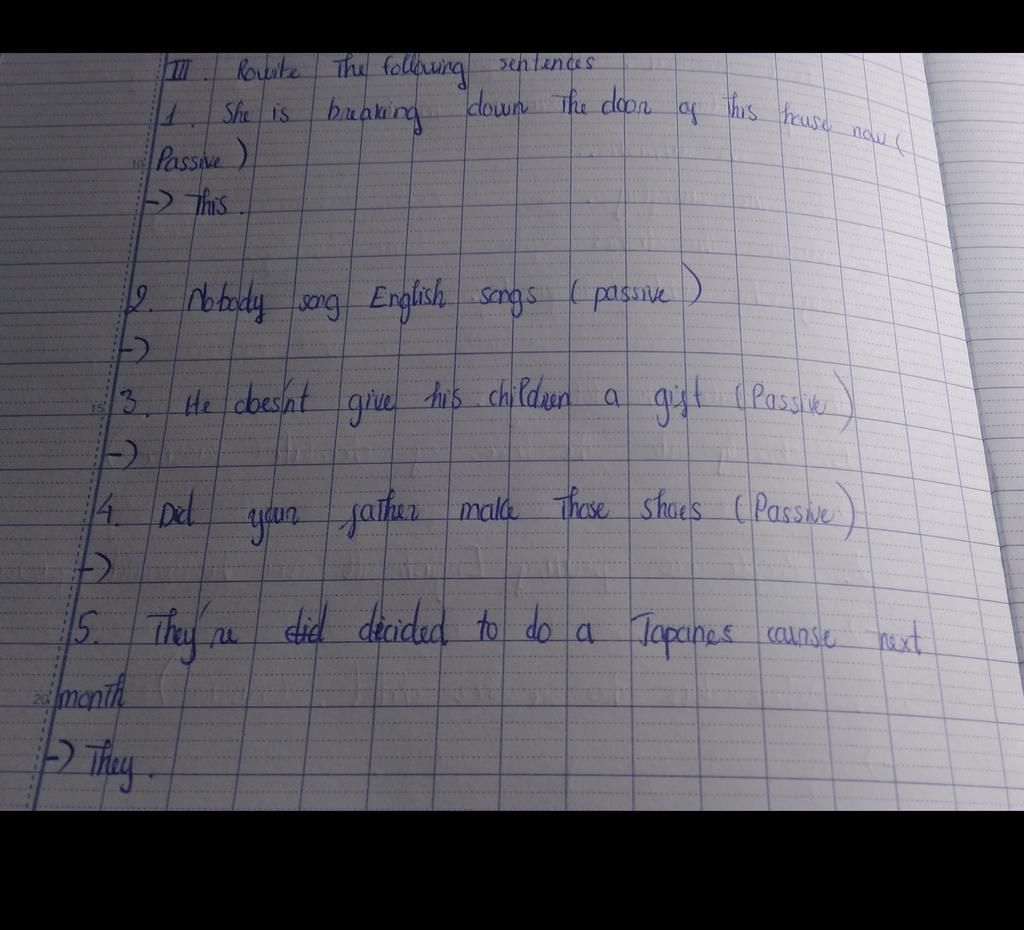 III. Rewite The following sentences
1. She is breaking down The door of This house now (
Passive)
-> This.
2. Nobody song English songs (passive)
->
3. He does'nt give his children a gift (Passive)
->
4. Did your father make Those shoes (Passive)
->
5. They're did decided to do a Japanes course next
month
-> They.